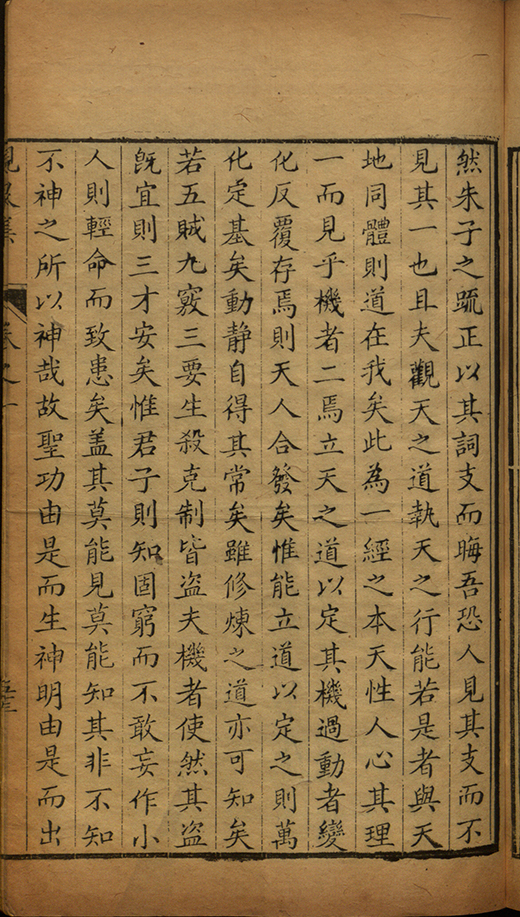 然朱子之疏正以其詞支而晦吾恐人見其支而不
見其一也且夫觀天之道執天之行能若是者與天
地同體則道在我矣此為一經之本天性人心其理
一而見乎機者二焉立天之道以定其機過動者變
化反覆存焉則天人合發矣惟能立道以定之則萬
化定基矣動靜自得其常矣雖修煉之道亦可知矣
若五賊九竅三要生殺克制皆盜夫機者使然其盜
旣宜則三才安矣惟君子則知固窮而不敢妄作小
人則輕命而致患矣盖其莫能見莫能知其非不知
不神之所以神哉故聖功由是而生神明由是而出
卷之一